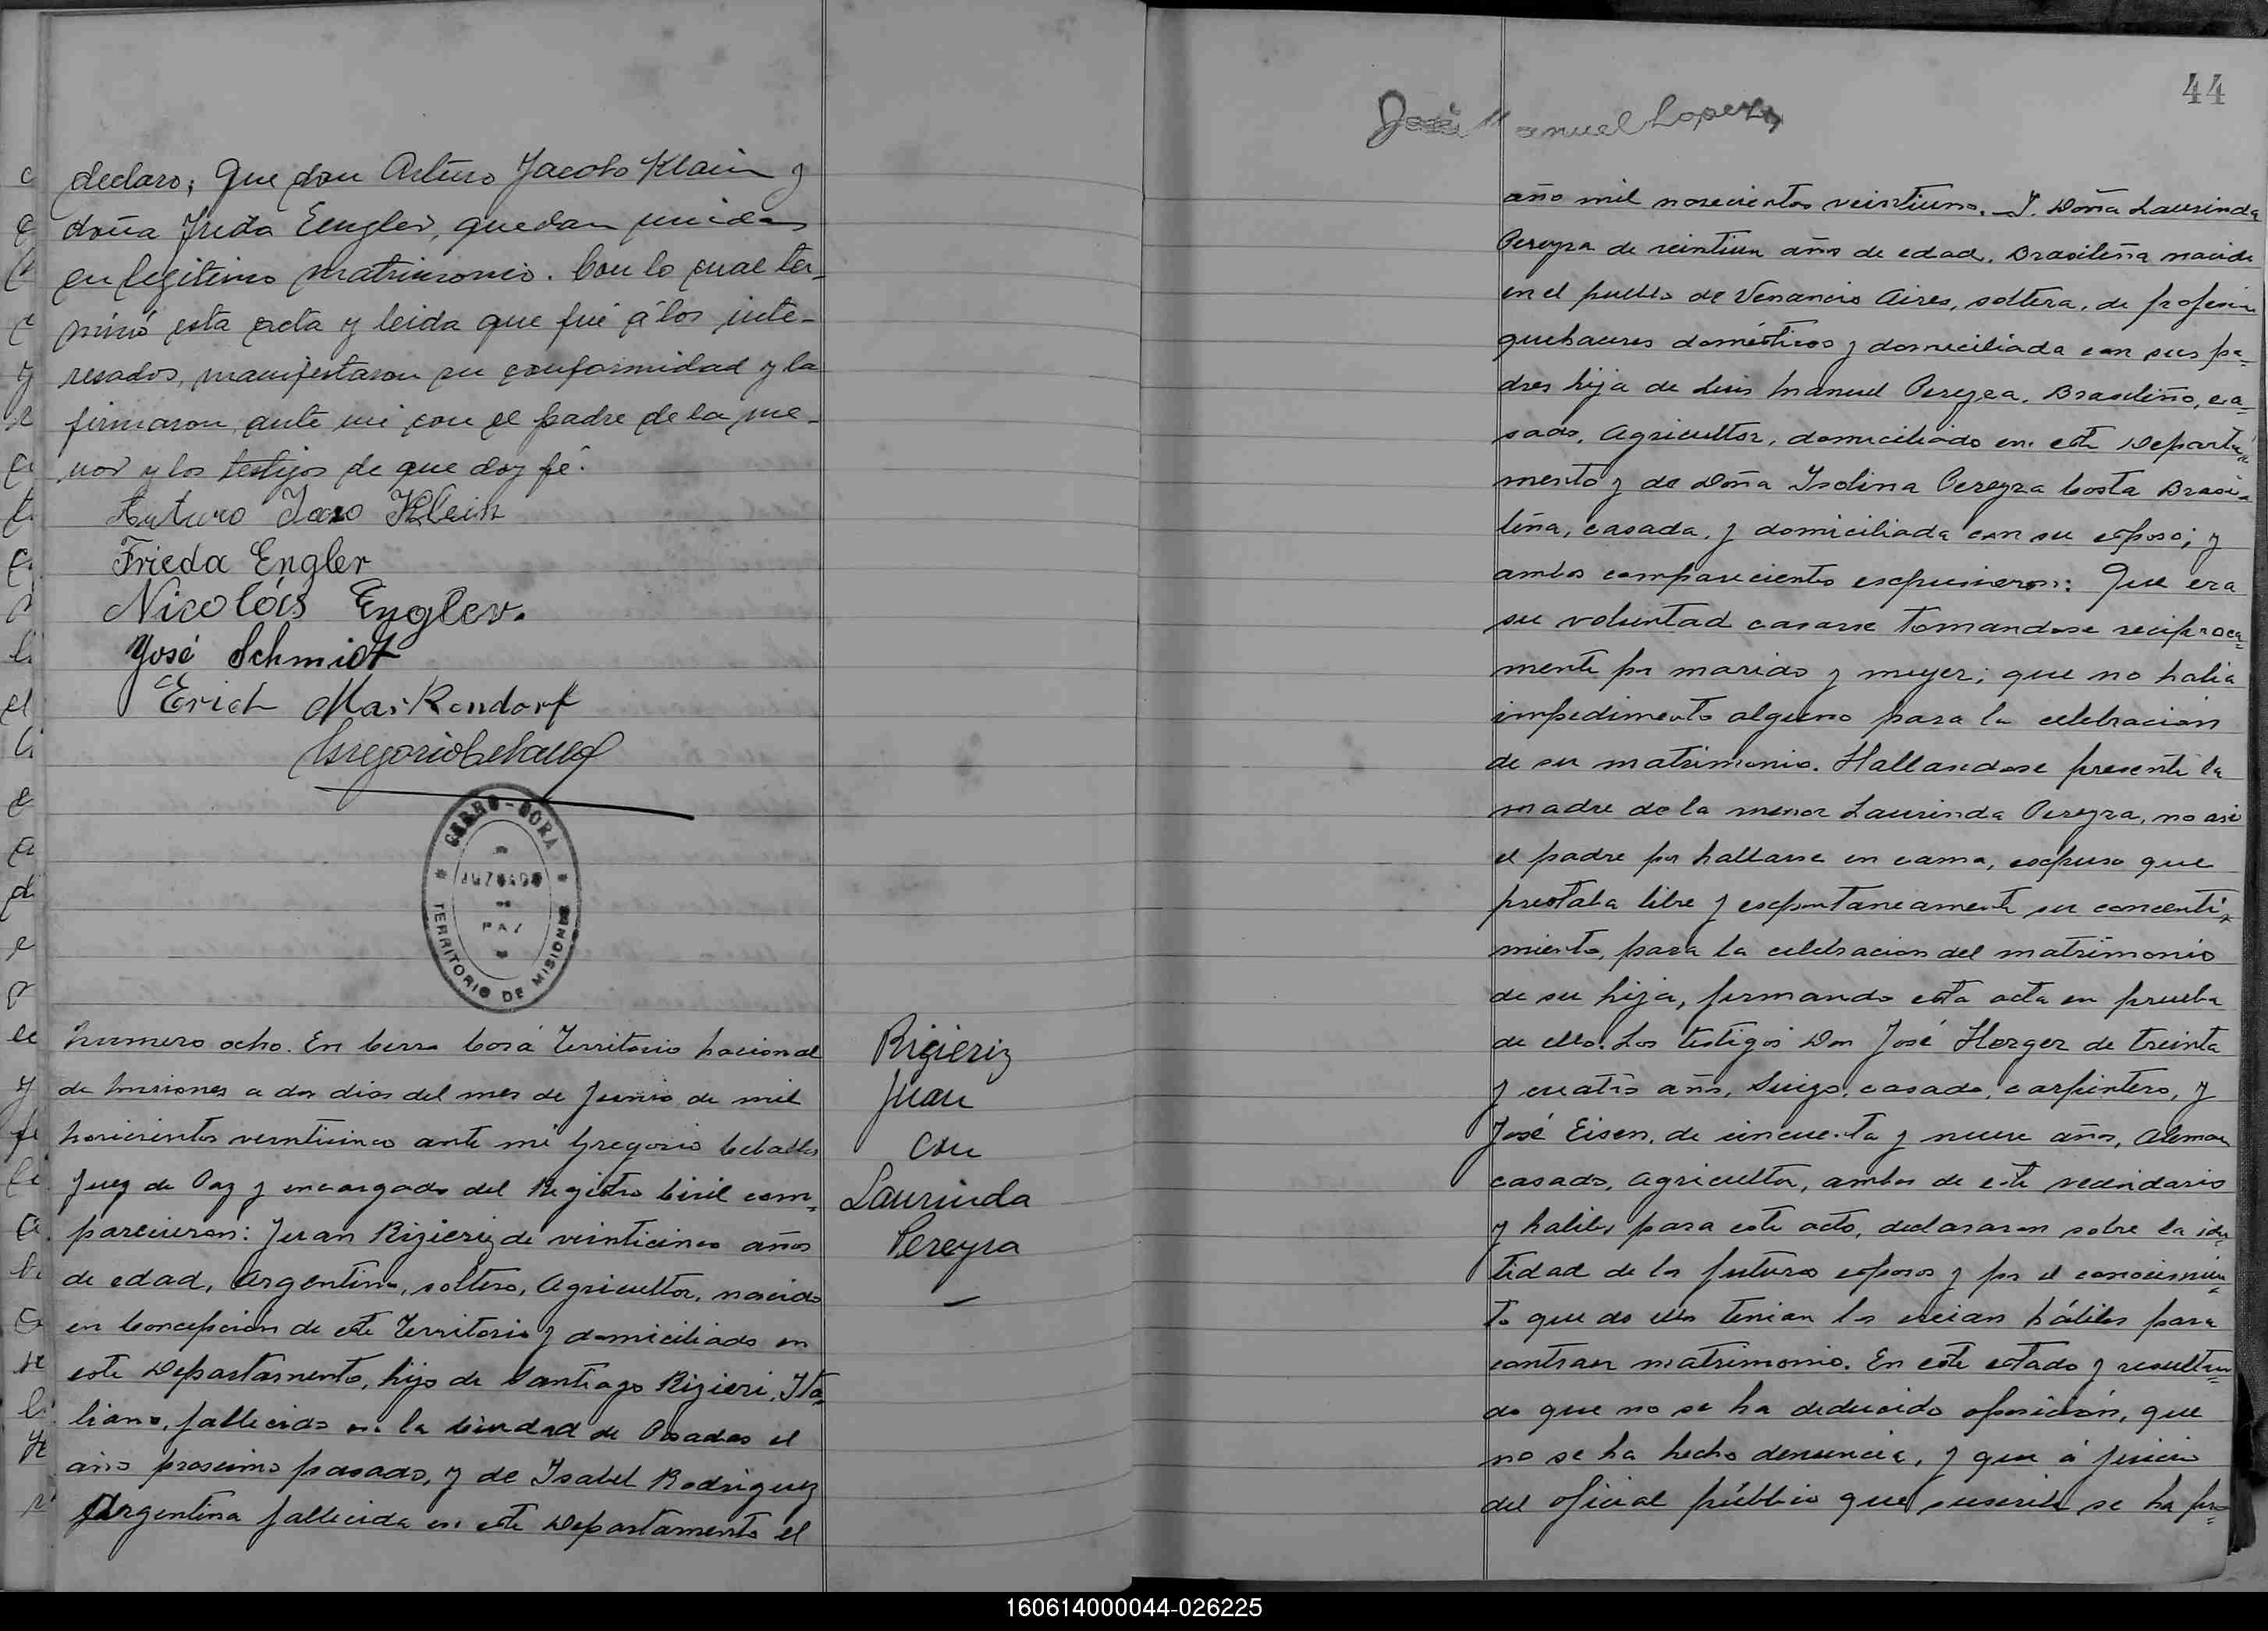 declaro; Que don Arturo Jacobo Klain y
doña Frida Eengler, quedan unidos
en legitimo matrimonio. Con lo cual ter-
minó esta acta y leida que fué á los inte-
resados, manifestaron su conformidad y la
firmaron ante mi con el padre de la me-
nor y los testigos de que doy fé.
Arturo Jaco Klein
Frieda Engler
Nicolás Engler.
José Schmidt
Erich Markendorf
Gregorio Ceballos
CERRO-CORA
JUZGADO
DE
PAZ
TERRITORIO DE MISIONES
Numero ocho. En Cerro Corá Territorio Nacional
de Misiones a dos dias del mes de Junio de mil
novecientos veinticinco ante mi Gregorio Ceballos
Juez de Paz y encargado del Registro Civil com-
parecieron: Juan Rizieriz de veinticinco años
de edad, Argentino, soltero, Agricultor, nacido
en Concepcion de este Territorio y domiciliado en
este Departamento, hijo de Santiago Rizieri, Ita-
liano, fallecido en la Ciudad de Posadas el
año proximo pasado, y de Isabel Rodriguez
Argentina fallecida en este Departamento el
Rigieriz
Juan
con
Laurinda
Pereyra
44
José Manuel Lopez
año mil novecientos veintiuno. Y. Doña Laurinda
Pereyra de veintiun años de edad, Brasileña nacida
en el pueblo de Venancio Aires, soltera, de profesion
quehaceres domésticos y domiciliada con sus pa=
dres hija de Luis Manuel Pereyra, Brasileño, ca=
sado, Agricultor, domiciliado en este Departa=
mento y de Doña Isolina Pereyra Costa Brasi=
leña, casada, y domiciliada con su esposo; y
ambos comparecientes espusieron: Que era
su voluntad casarse tomandose reciproca=
mente por marido y muger; que no habia
impedimento alguno para la celebracion
de su matrimonio. Hallandose presente la
madre de la menor Laurinda Pereyra, no asi
el padre por hallarse en cama, espuso que
prestaba libre y espontaneamente su concenti=
miento, para la celebracion del matrimonio
de su hija, firmando esta acta en prueba
de ello. Los testigos Don José Horger de treinta
y cuatro años, Suizo, casado, carpintero, y
José Eisen, de cincuenta y nueve años, Aleman
casado, Agricultor, ambos de este vecindario
y habiles para este acto, declararon sobre la iden=
tidad de los futuros esposos y por el conocimien=
to que de ellos tenian los creian hábiles para
contraer matrimonio. En este estado y resultan=
do que no se ha deducido oposición, que
no se ha hecho denuncia, y que á juicio
del oficial público que suscribe se ha pro=
160614000044-026225